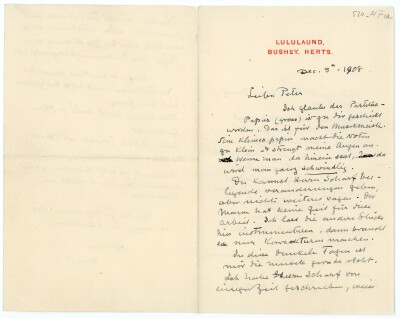 LULULAUND,
BUSHEY, HERTS.
Dec. 3ᵗʰ 1908
Lieber Peter
Ich glaube das Partitur-
Papier (gross) geschickt
worden. Das ist für den
Ein kleines papier macht die Noten
zu klein & strengt meine Augen an.
Wenn man da hinein
wird man ganz schwindlig
Du kannst Herrn Scharf
veranderungen geben,
aber nichts weiteres sagen. Der
Mann hat keine Zeit für diese
Arbeit. Ich las die andern
instrumentiren, dann braucht
er nur Korrekturen machen.
In diese dunkele Tagen ist
mir die musik gerade
Ich habe Herrn Scharf vor
einiger Zeit geschrieben,